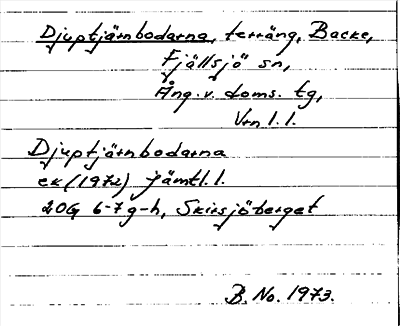 Djuptjärnbodarna, terräng, Backe,
Fjällsjö sn,
Ång. v. doms. tg,
Vrn l. l.
Djuptjärnbodarna
ek (1972) Jämtl. l.
20G 6-7g-h, Skirsjöberget
B. No. 1973.